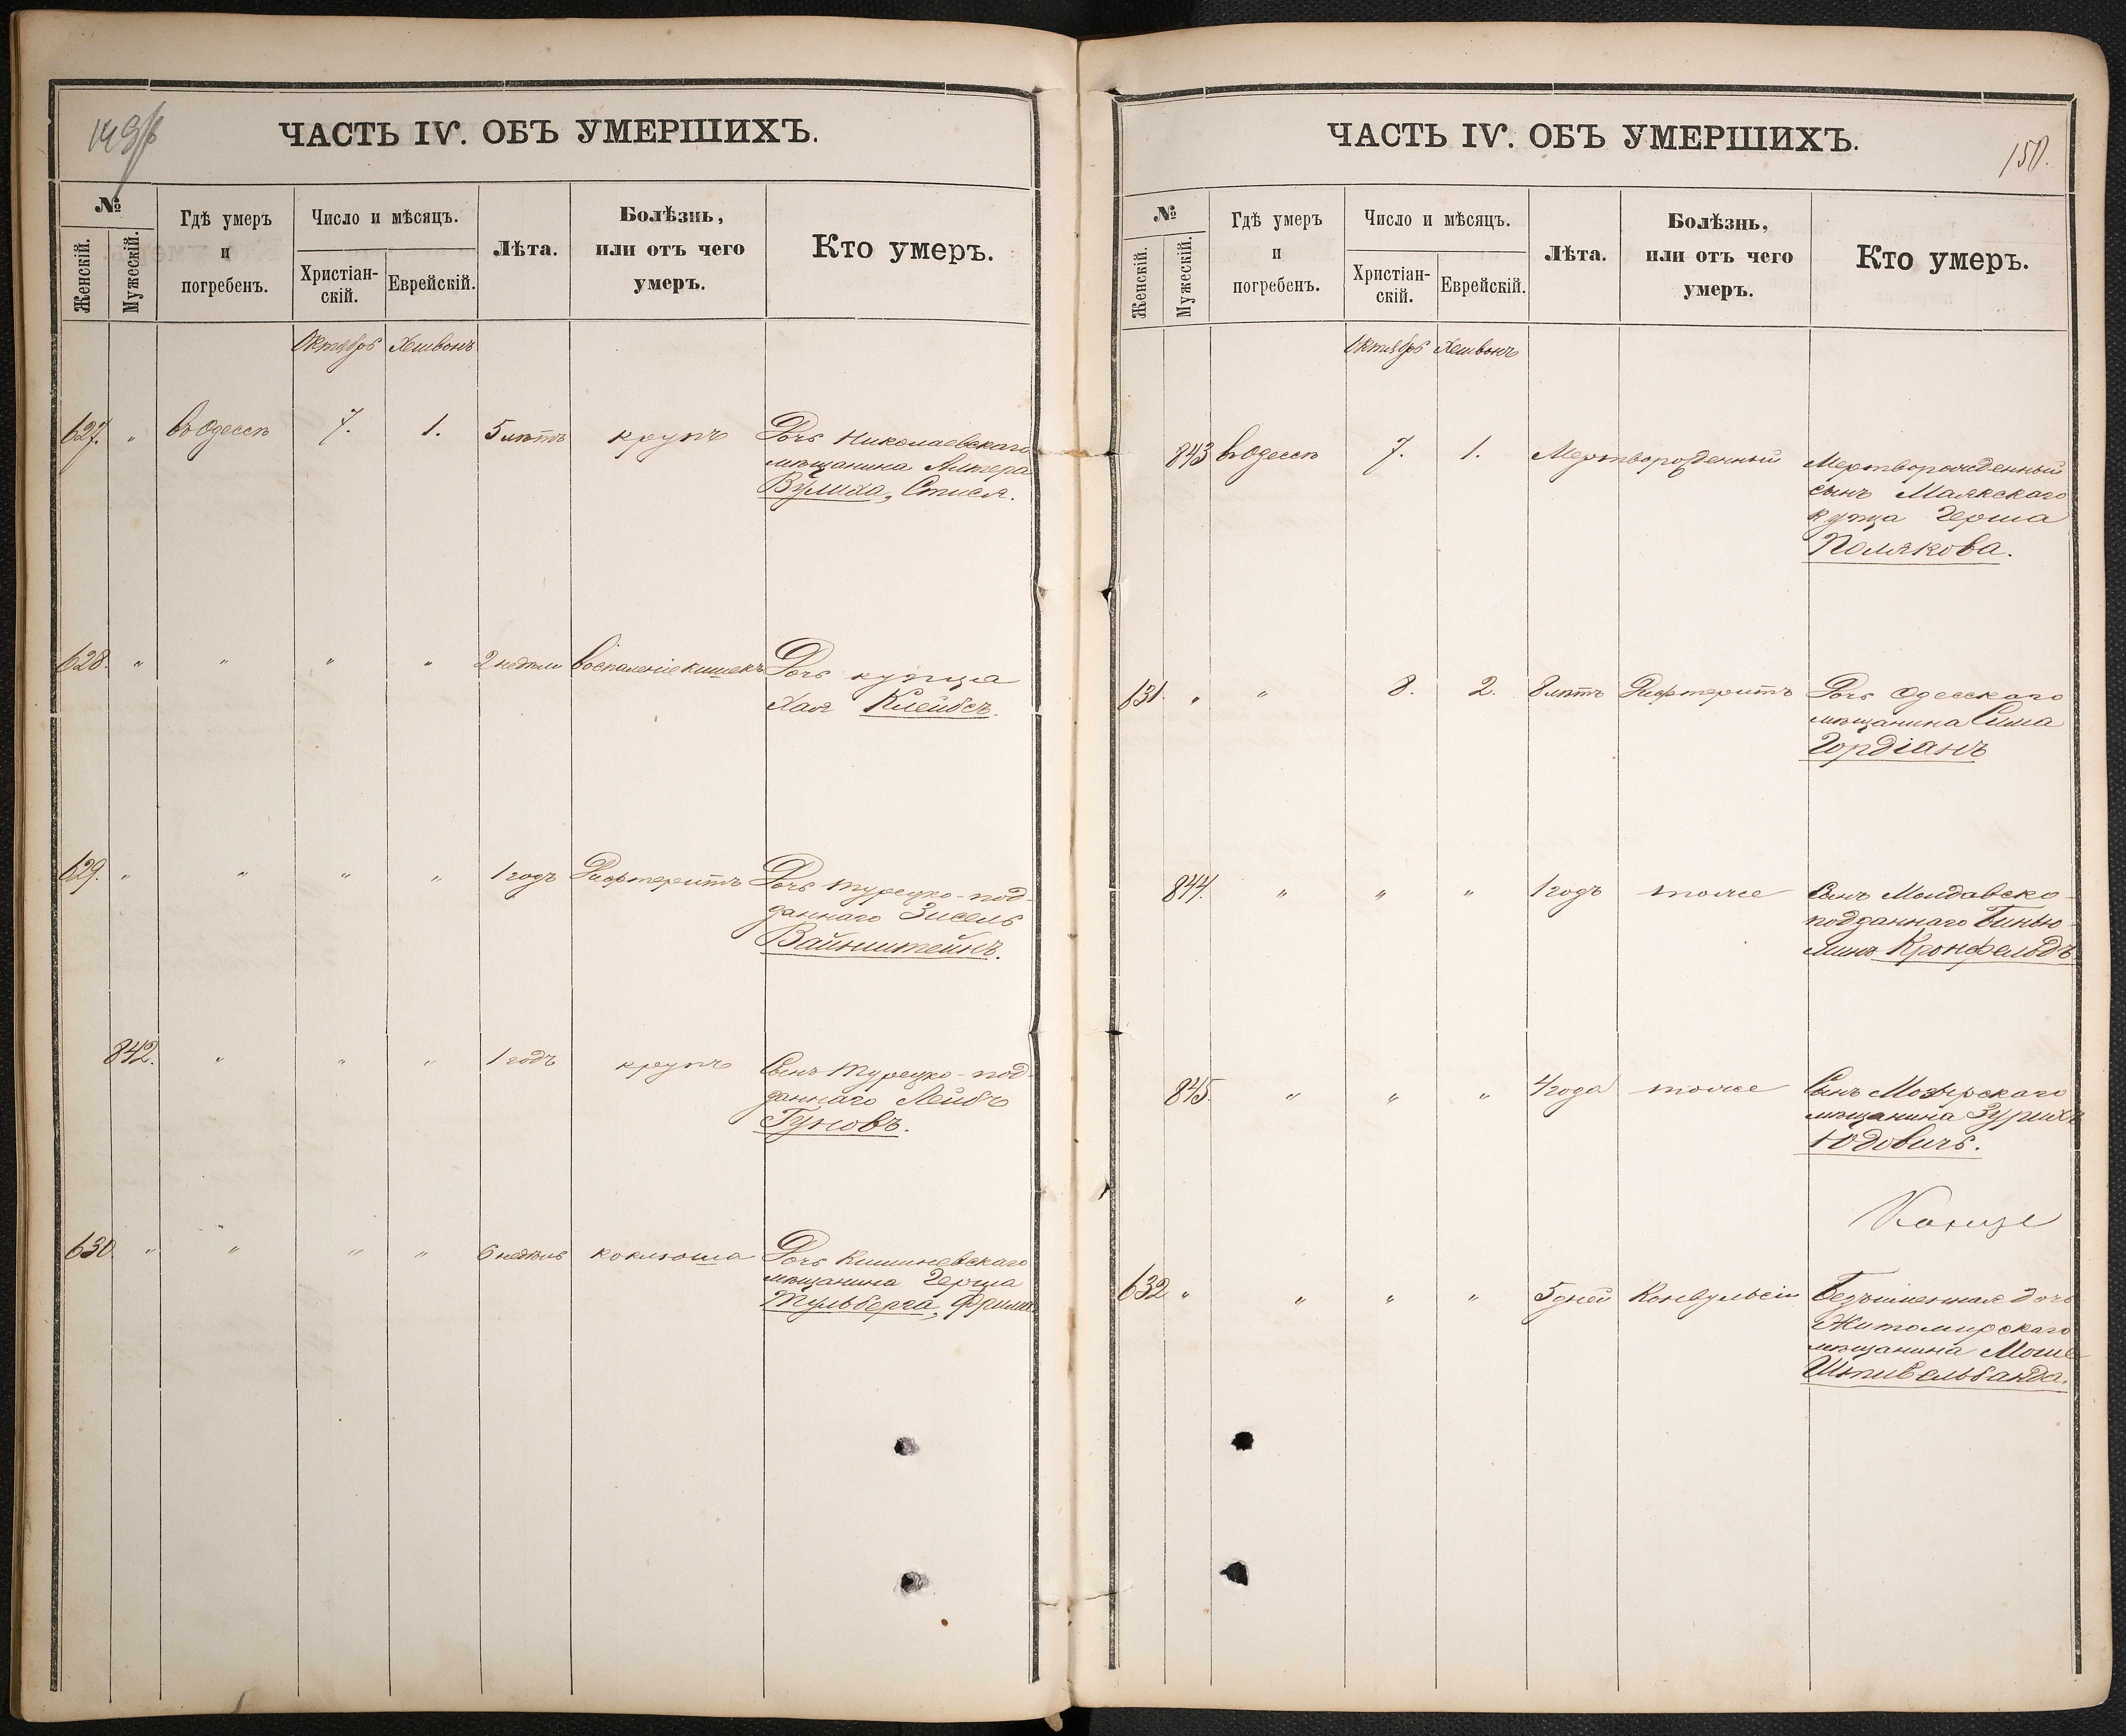 149/б
ЧАСТЬ IV. ОБЪ УМЕРШИХЪ.
№
Женскій.
Мужескій.
Гдѣ умеръ
и
погребенъ.
Число и мѣсяцъ.
Христіан-
скій.
Еврейскій.
Лѣта.
Болѣзнь,
или отъ чего
умеръ.
Кто умеръ.
Октябрь Хешвонъ
627. " въ Одессѣ 7. 1. 5 лѣтъ крупъ Дочь Николаевскаго
мѣщанина Алтера
Вулиха,
628. " " " " 2 недѣли воспаленіе кишекъ Дочь купца
Хая Клейбсъ.
629. " " " " 1 годъ Дифтеритъ Дочь турецко-под-
даннаго Зисель
Вайнштейнъ.
842. " " " 1 годъ крупъ Сынъ турецко-под-
даннаго Лейбъ
Гуновъ.
630. " " " " 6 недѣль коклюша Дочь Кишиневскаго
мѣщанина Герша
Тульберга,
150.
ЧАСТЬ IV. ОБЪ УМЕРШИХЪ.
№
Женскій.
Мужескій.
Гдѣ умеръ
и
погребенъ.
Число и мѣсяцъ.
Христіан-
скій.
Еврейскій.
Лѣта.
Болѣзнь,
или отъ чего
умеръ.
Кто умеръ.
Октябрь Хешвонъ
843 въ Одессѣ 7. 1. Мертворожденный Мертворожденный
сынъ Маякскаго
купца Герша
Полякова.
131. " " 8. 2. 8 лѣтъ Дифтеритъ Дочь Одесскаго
мѣщанина Сима
Гордіанъ
844. " " " 1 годъ тоже Сынъ Молдавско-
подданнаго Бинью-
минъ Кронфельдъ
845. " " " 4 года тоже Сынъ Мозырскаго
мѣщанина
Юдовичъ.
632 " " " " 5 дней Конвульсіи Безъименная дочь
Житомирскаго
мѣщанина Моше
Шпивельбанда.